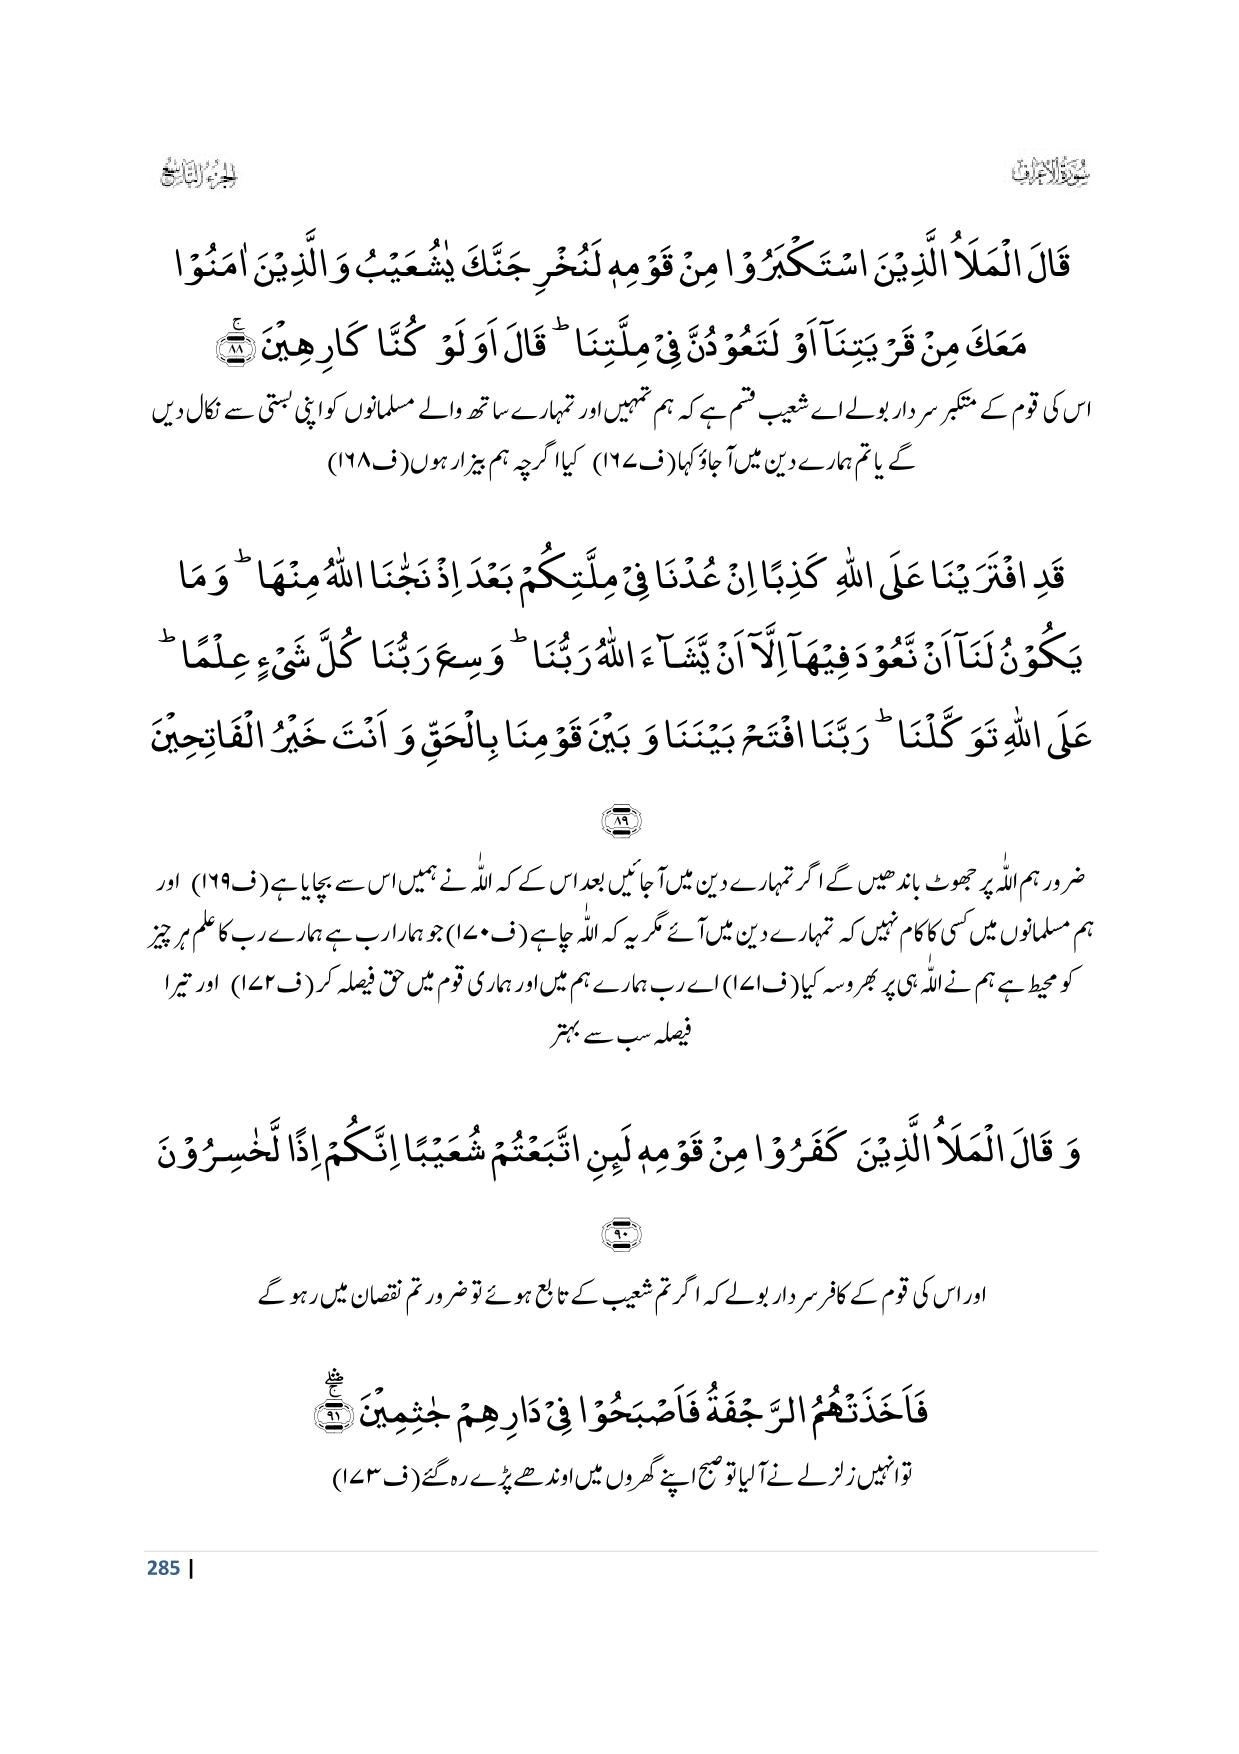 سُوْرَۃُ الْاَعْرَاف
الجزء التاسع
قَالَ الْمَلَاُ الَّذِيْنَ اسْتَكْبَرُوْا مِنْ قَوْمِهٖ لَنُخْرِجَنَّكَ يٰشُعَيْبُ وَ الَّذِيْنَ اٰمَنُوْا
مَعَكَ مِنْ قَرْيَتِنَاۤ اَوْ لَتَعُوْدُنَّ فِيْ مِلَّتِنَا ؕ قَالَ اَوَ لَوْ كُنَّا كَارِهِيْنَ ۚ﴿۸۸﴾
اس کی قوم کے متکبر سردار بولے اے شعیب قسم ہے کہ ہم تمہیں اور تمہارے ساتھ والے مسلمانوں کو اپنی بستی سے نکال دیں
گے یا تم ہمارے دین میں آ جاؤ کہا (ف۱۶۷) کیا اگرچہ ہم بیزار ہوں (ف۱۶۸)
قَدِ افْتَرَيْنَا عَلَى اللّٰهِ كَذِبًا اِنْ عُدْنَا فِيْ مِلَّتِكُمْ بَعْدَ اِذْ نَجّٰىنَا اللّٰهُ مِنْهَا ؕ وَ مَا
يَكُوْنُ لَنَاۤ اَنْ نَّعُوْدَ فِيْهَاۤ اِلَّاۤ اَنْ يَّشَآءَ اللّٰهُ رَبُّنَا ؕ وَسِعَ رَبُّنَا كُلَّ شَيْءٍ عِلْمًا ؕ
عَلَى اللّٰهِ تَوَكَّلْنَا ؕ رَبَّنَا افْتَحْ بَيْنَنَا وَ بَيْنَ قَوْمِنَا بِالْحَقِّ وَ اَنْتَ خَيْرُ الْفَاتِحِيْنَ
﴿۸۹﴾
ضرور ہم اللّٰہ پر جھوٹ باندھیں گے اگر تمہارے دین میں آ جائیں بعد اس کے کہ اللّٰہ نے ہمیں اس سے بچایا ہے (ف۱۶۹) اور
ہم مسلمانوں میں کسی کا کام نہیں کہ تمہارے دین میں آئے مگر یہ کہ اللّٰہ چاہے (ف۱۷۰) جو ہمارا رب ہے ہمارے رب کا علم ہر چیز
کو محیط ہے ہم نے اللّٰہ ہی پر بھروسہ کیا (ف۱۷۱) اے رب ہمارے ہم میں اور ہماری قوم میں حق فیصلہ کر (ف۱۷۲) اور تیرا
فیصلہ سب سے بہتر
وَ قَالَ الْمَلَاُ الَّذِيْنَ كَفَرُوْا مِنْ قَوْمِهٖ لَىِٕنِ اتَّبَعْتُمْ شُعَيْبًا اِنَّكُمْ اِذًا لَّخٰسِرُوْنَ
﴿۹۰﴾
اور اس کی قوم کے کافر سردار بولے کہ اگر تم شعیب کے تابع ہوئے تو ضرور تم نقصان میں رہو گے
فَاَخَذَتْهُمُ الرَّجْفَةُ فَاَصْبَحُوْا فِيْ دَارِهِمْ جٰثِمِيْنَ ﴿۹۱﴾
تو انہیں زلزلے نے آ لیا تو صبح اپنے گھروں میں اوندھے پڑے رہ گئے (ف۱۷۳)
285 |